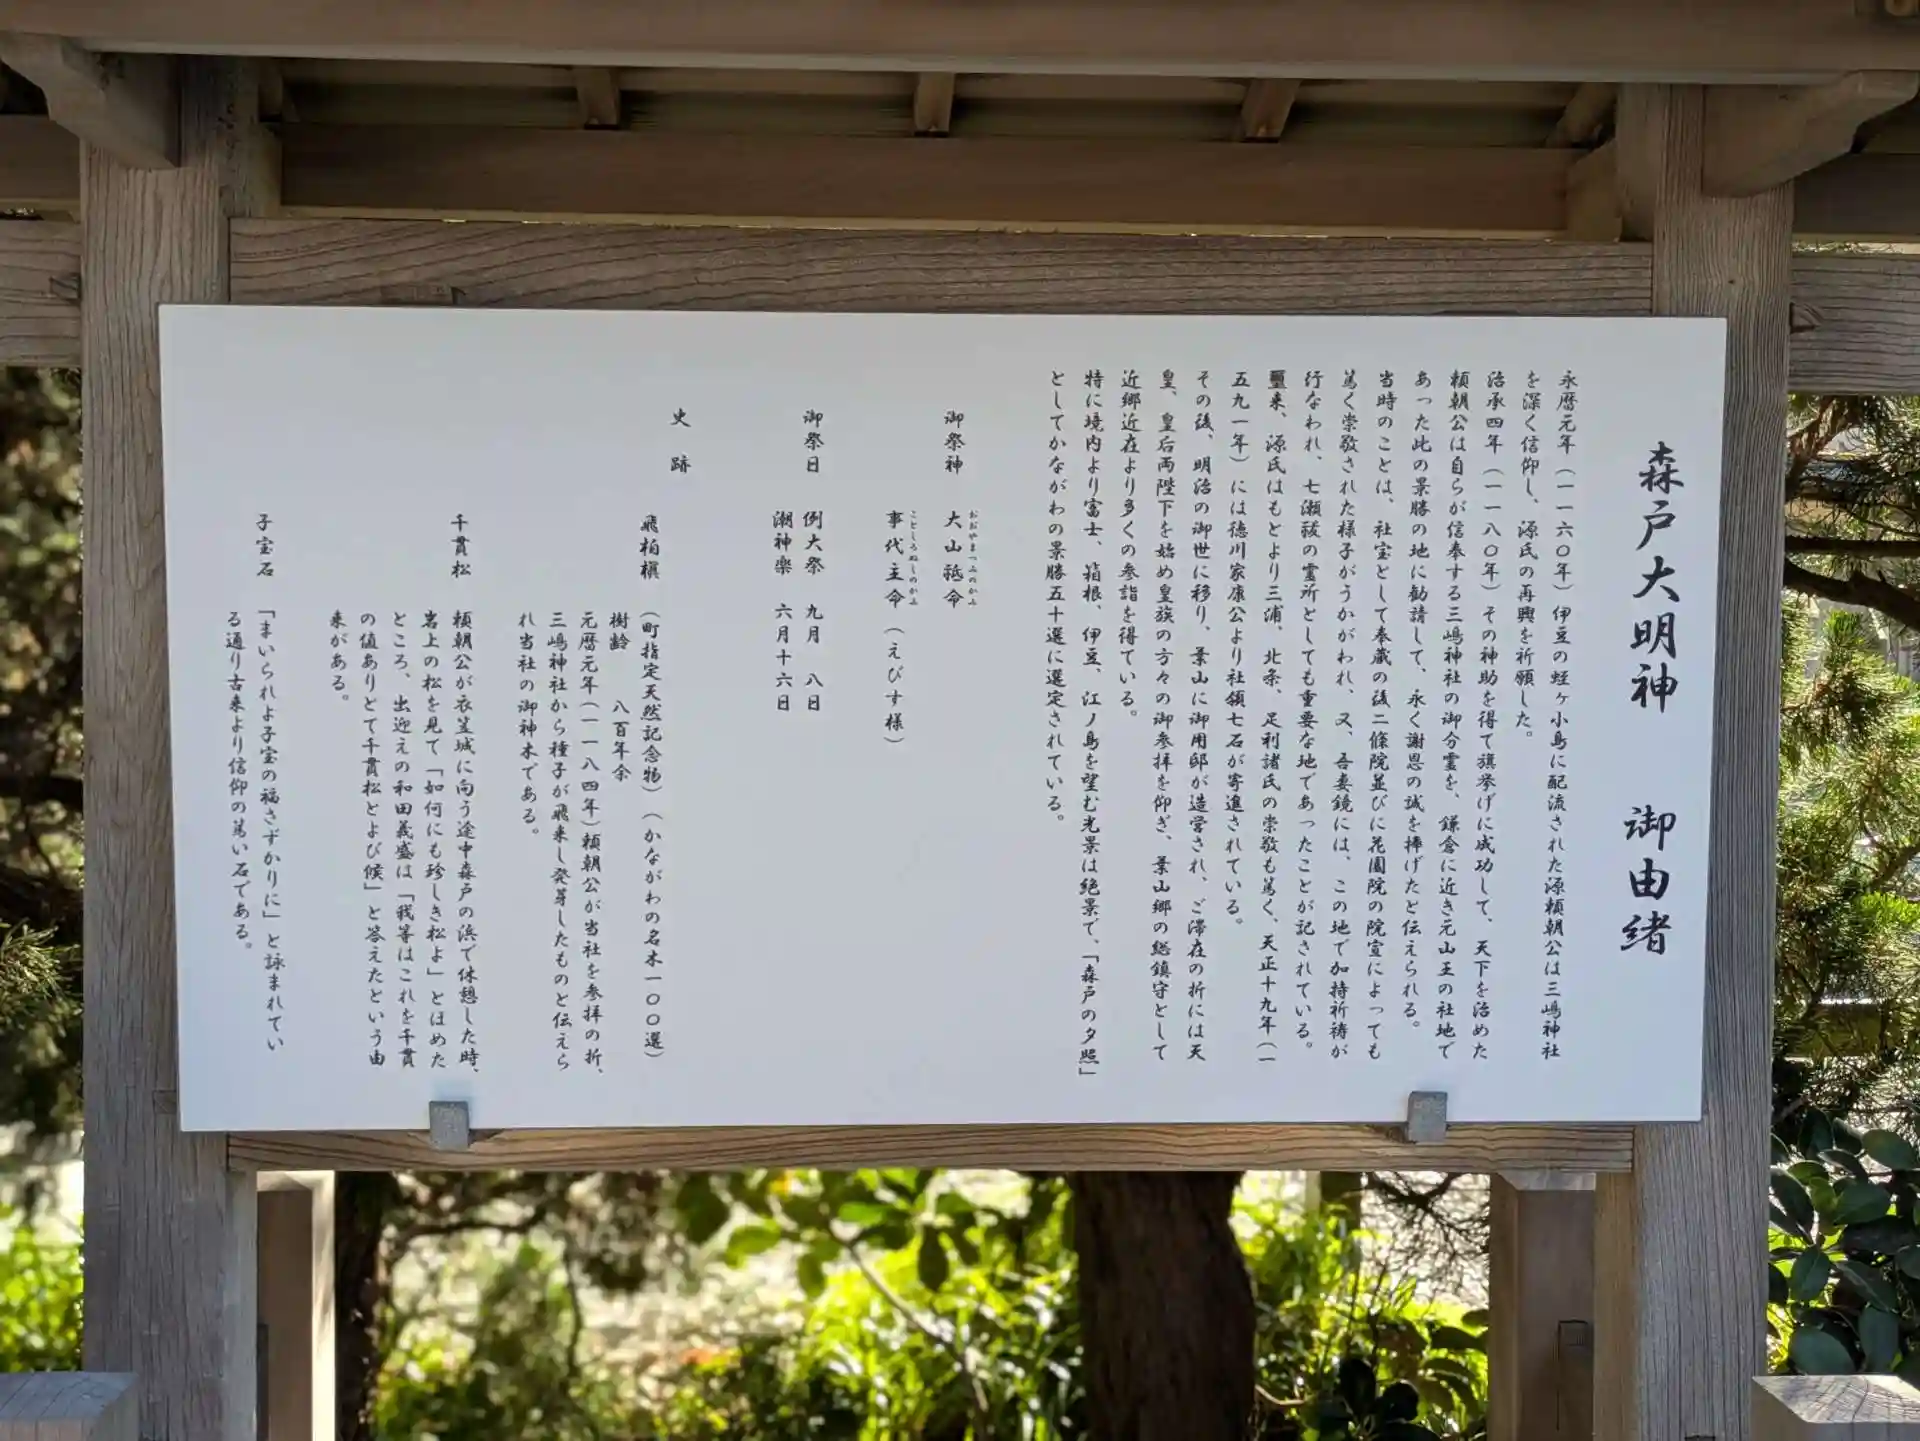 森戸大明神 御由緒
永暦元年(一一六〇年)伊豆の蛭ヶ小島に配流された源頼朝公は三嶋神社
を深く信仰し、源氏の再興を祈願した。
治承四年(一一八〇年)その神助を得て旗挙げに成功して、天下を治めた
頼朝公は自らが信奉する三嶋神社の御分霊を、鎌倉に近き元山王の社地で
あった此の景勝の地に勧請して、永く謝恩の誠を捧げたと伝えられる。
当時のことは、社宝として奉蔵の後二條院並びに花園院の院宣によっても
篤く崇敬された様子がうかがわれ、又、吾妻鏡には、この地で加持祈祷が
行なわれ、七瀬祓の霊所としても重要な地であったことが記されている。
爾来、源氏はもとより三浦、北条、足利諸氏の崇敬も篤く、天正十九年(一
五九一年)には徳川家康公より社領七石が寄進されている。
その後、明治の御世に移り、葉山に御用邸が造営され、ご滞在の折には天
皇、皇后両陛下を始め皇族の方々の御参拝を仰ぎ、葉山郷の総鎮守として
近郷近在より多くの参詣を得ている。
特に境内より富士、箱根、伊豆、江ノ島を望む光景は絶景で、「森戸の夕照」
としてかながわの景勝五十選に選定されている。
御祭神 大山祗命
おおやまつみのかみ
事代主命(えびす様)
ことしろぬしのかみ
御祭日 例大祭 九月 八日
潮神楽 六月十六日
史跡
飛柏槇 (町指定天然記念物)(かながわの名木一〇〇選)
樹齢 八百年余
元暦元年(一一八四年)頼朝公が当社を参拝の折、
三嶋神社から種子が飛来し発芽したものと伝えら
れ当社の御神木である。
千貫松 頼朝公が衣笠城に向う途中森戸の浜で休憩した時、
岩上の松を見て「如何にも珍しき松よ」とほめた
ところ、出迎えの和田義盛は「我等はこれを千貫
の値ありとて千貫松とよび候」と答えたという由
来がある。
子宝石 「まいられよ子宝の福さずかりに」と詠まれてい
る通り古来より信仰の篤い石である。